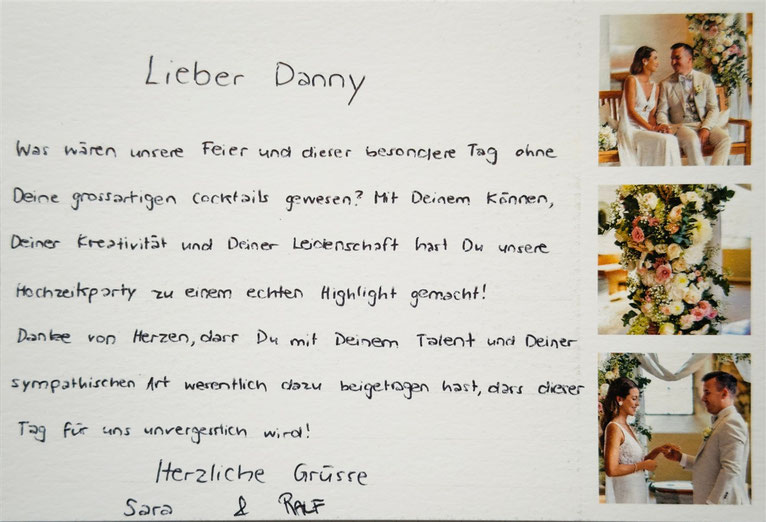 Lieber Danny
Was wären unsere Feier und dieser besondere Tag ohne
Deine grossartigen Cocktails gewesen? Mit Deinem Können,
Deiner Kreativität und Deiner Leidenschaft hast Du unsere
Hochzeitsparty zu einem echten Highlight gemacht!
Danke von Herzen, dass Du mit Deinem Talent und Deiner
sympathischen Art wesentlich dazu beigetragen hast, dass dieser
Tag für uns unvergesslich wird!
Herzliche Grüsse
Sara & RALF